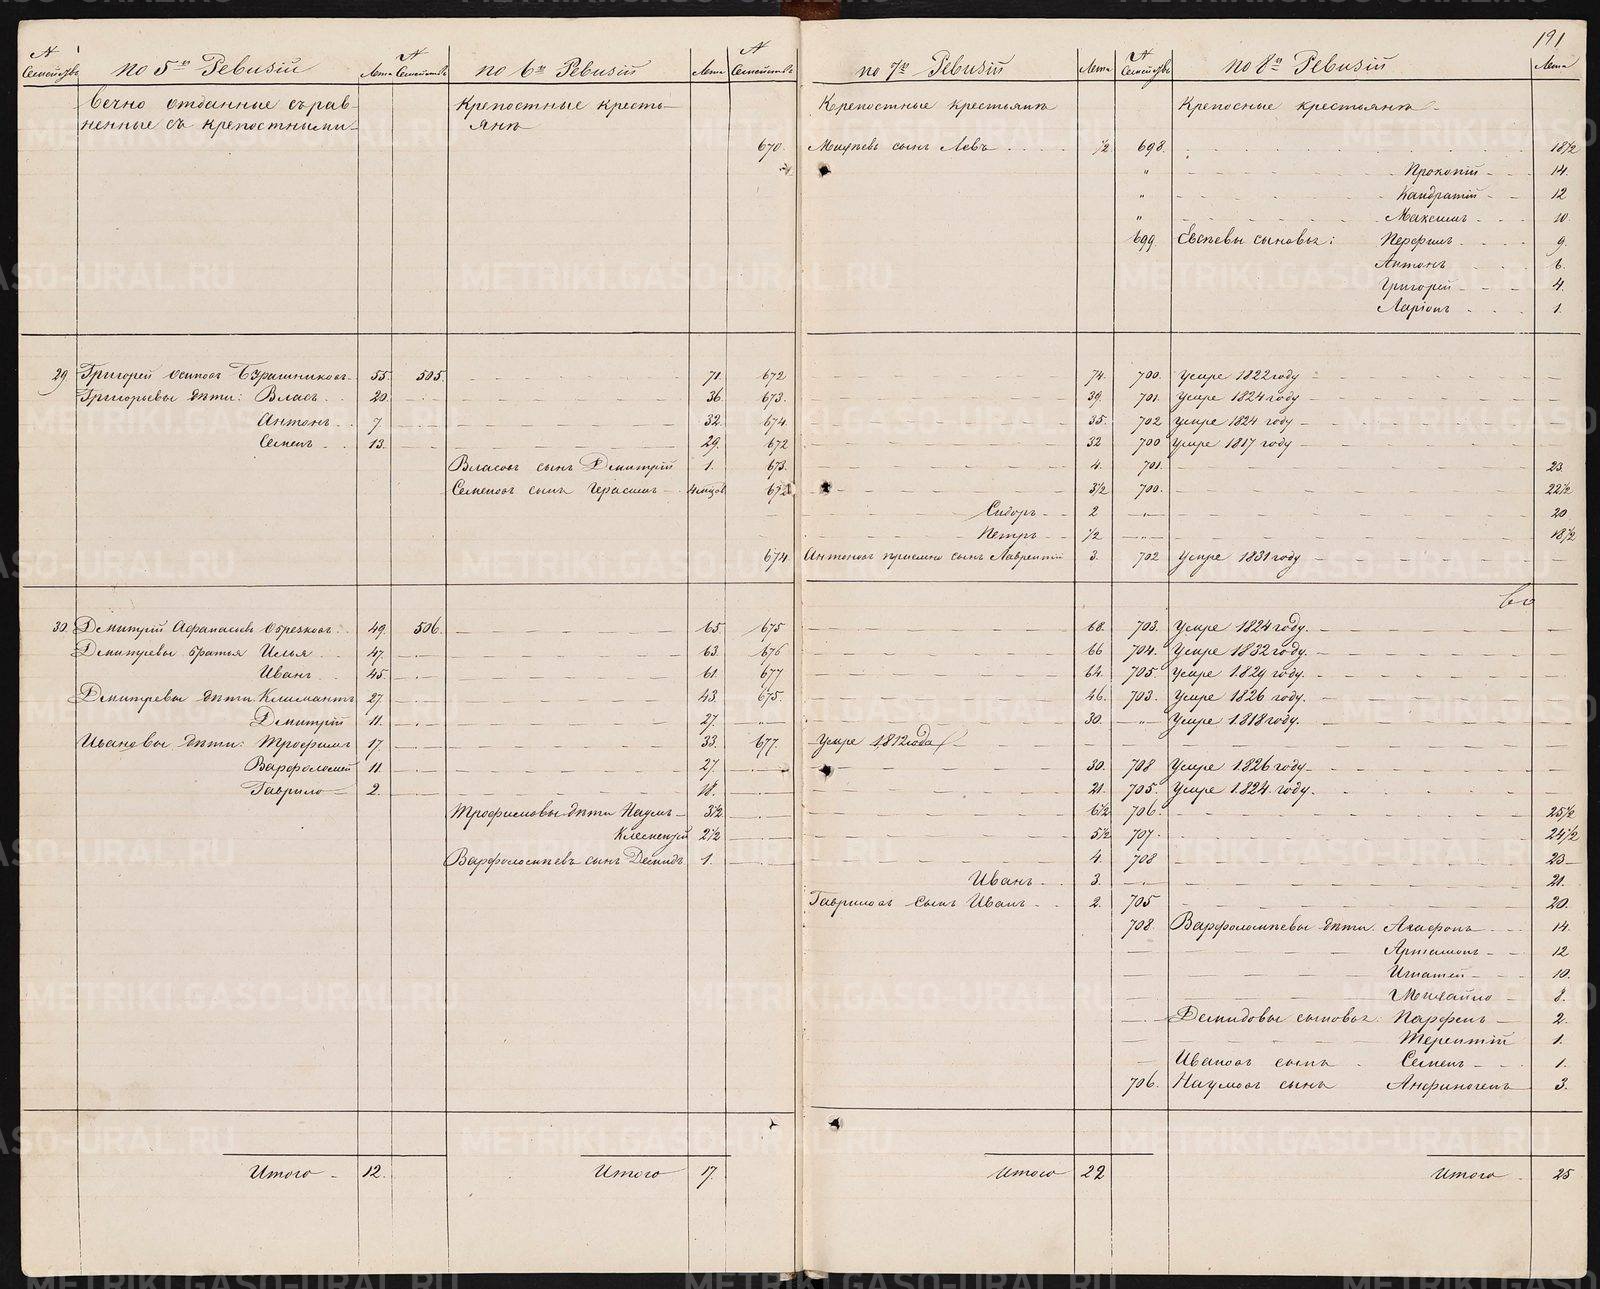 191
№ Семействъ по 5й Ревизіи Лета № Семействъ по 6й Ревизіи Лета № Семействъ по 7й Ревизіи Лета № Семействъ по 8й Ревизіи Лета
Вечно отданные съ рав- Крепостные кресть- Крепостные крестьянъ Крепосные крестьянъ
ненные съ крепостными янъ
670. сынъ Левъ 1/2 698. 18 1/2
" Прокопій 14.
" Кандратій 12
" Максимъ 10.
699. Евсѣевы сыновья: Перфилъ 9.
Антонъ 6.
Григорей 4.
Ларіонъ 1.
29 Григорей Осиповъ 55. 505. 71. 672 74. 700. Умре 1822 году
Григорьевы дѣти: Власъ 20. 36. 673. 39. 701. Умре 1824 году
Антонъ 7 32. 674. 35. 702 Умре 1824 году
Семенъ 13. 29. 672 32 700 Умре 1817 году
Власовъ сынъ Дмитрій 1. 673. 4. 701. 23.
Семеновъ сынъ Герасимъ 4 мцов 672 3 1/2 700. 22 1/2
Сидоръ 2 " 20
Петръ 1/2 18 1/2
674. Антоновъ приемно сынъ Лаврентій 3. 702 Умре 1831 году
30. Дмитрій Афанасьевъ Обрезковъ 49. 506. 65. 675 68. 703. Умре 1824 году.
Дмитріевы братья Илья 47. 63. 676 66 704. Умре 1832 году.
Иванъ 45. 61. 677 64. 705. Умре 1829 году.
Дмитревы дѣти: Климантъ 27. 43. 675. 46. 703. Умре 1826 году.
Дмитрій 11. 27. " 30. " Умре 1818 году.
Ивановы дѣти: Трофимъ 17. 33. 677. Умре 1812 года
Варфоломей 11. 27. 30. 708 Умре 1826 году
Гаврило 2. 18. 21. 705. Умре 1824 году.
Трофимовы дѣти Наумъ 3 1/2 6 1/2 706. 25 1/2
Клементій 2 1/2 5 1/2 707. 24 1/2
Варфоломѣевъ сынъ Демидъ 1. 4. 708 23
Иванъ 3. 21.
Гавриловъ сынъ Иванъ 2. 705 20.
708. Варфоломѣевы дѣти: Агафонъ 14.
Артамонъ 12
Игнатей 10.
Михайло 8.
Демидовы сыновья: Парфенъ 2.
Терентій 1.
Ивановъ сынъ Семенъ 1.
706. Наумовъ сынъ Анфиногенъ 3.
Итого 12. Итого 17. Итого 22 Итого 25
METRIKI.GASO-URAL.RU